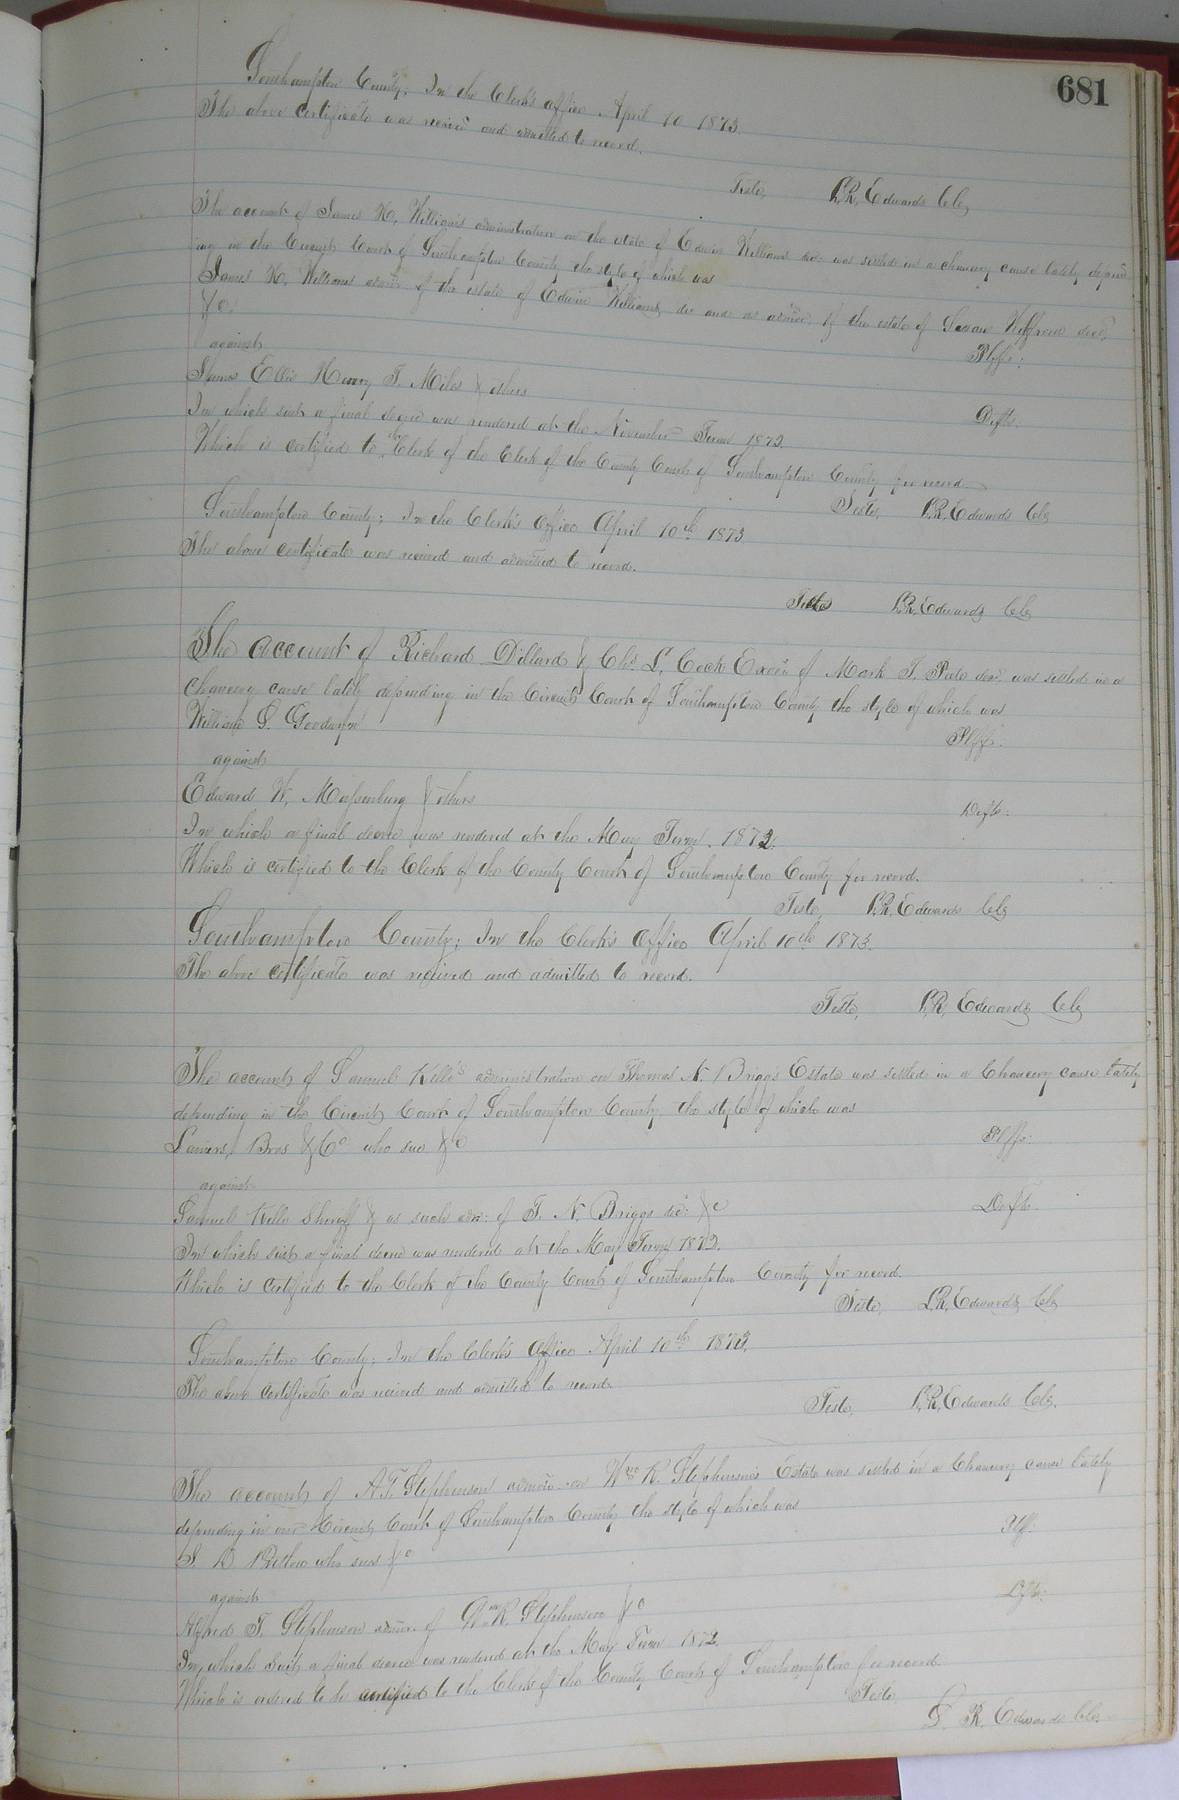 681
Southampton County; In the Clerk's office April 10 1873.
The above certificate was receivd and admitted to record.
Teste, L. R. Edwards Clk
The account of James K. William's administration on the estate of Edwin Williams decd. was settled in a chancery cause lately depend
ing in the Circuit Court of Southampton County the style of which was
James K. Williams admr. of the estate of Edwin Williams, dec and as admr. of the estate of Susan decd.
&c. Plffs:
against
James Ellis Henry T. Miles & others Defts.
In which suit a final decree was rendered at the November Term 1872.
Which is certified to the Clerk of the Clerk of the County Court of Southampton County for record.
Teste, L. R. Edwards Clk
Southampton County; In the Clerk's Office April 10th 1873
The above certificate was received and admitted to record.
Teste L. R. Edwards Clk
The account of Richard Dillard & Chs. L. Cock Exors of Mark T. decd. was settled in a
chancery cause lately depending in the Circuit Court of Southampton County the style of which was
William S. Goodwyn Plff:
against
Edward W. Massenburg & others Defts:
In which a final decree was rendered at the May Term. 1872.
Which is certified to the Clerk of the County Court of Southampton County for record.
Teste, L. R. Edwards Clk
Southampton County; In the Clerk's office April 10th 1873.
The above certificate was received and admitted to record.
Teste, L. R. Edwards Clk
The account of Samuel Kello's administration on Thomas N. Briggs Estate was settled in a Chancery cause lately
depending in the Circuit Court of Southampton County, the style of which was
Bros & Co who sue &c Plffs:
against
Samuel Kello Sheriff & as such adm: of T. N. Briggs decd: &c Defts.
In which suit a final decree was rendered at the May Term 1872.
Which is certified to the Clerk of the County Court of Southampton County for record.
Teste, L. R. Edwards, Clk
Southampton County; In the Clerk's Office April 10th 1873.
The above certificate was received and admitted to record.
Teste, L. R. Edwards Clk.
The account of A. T. Stephenson admin on Wm. R. Stephenson's Estate was settled in a Chancery cause lately
depending in our Circuit Court of Southampton County the style of which was
who sues &c Plff.
against
Alfred T. Stephenson admr. of Wm. R. Stephenson &c Dfts:
In which Suit a final decree was rendered at the May Term 1872.
Which is ordered to be certified to the Clerk of the County Court of Southampton for record.
Teste,
L. R. Edwards Clk.